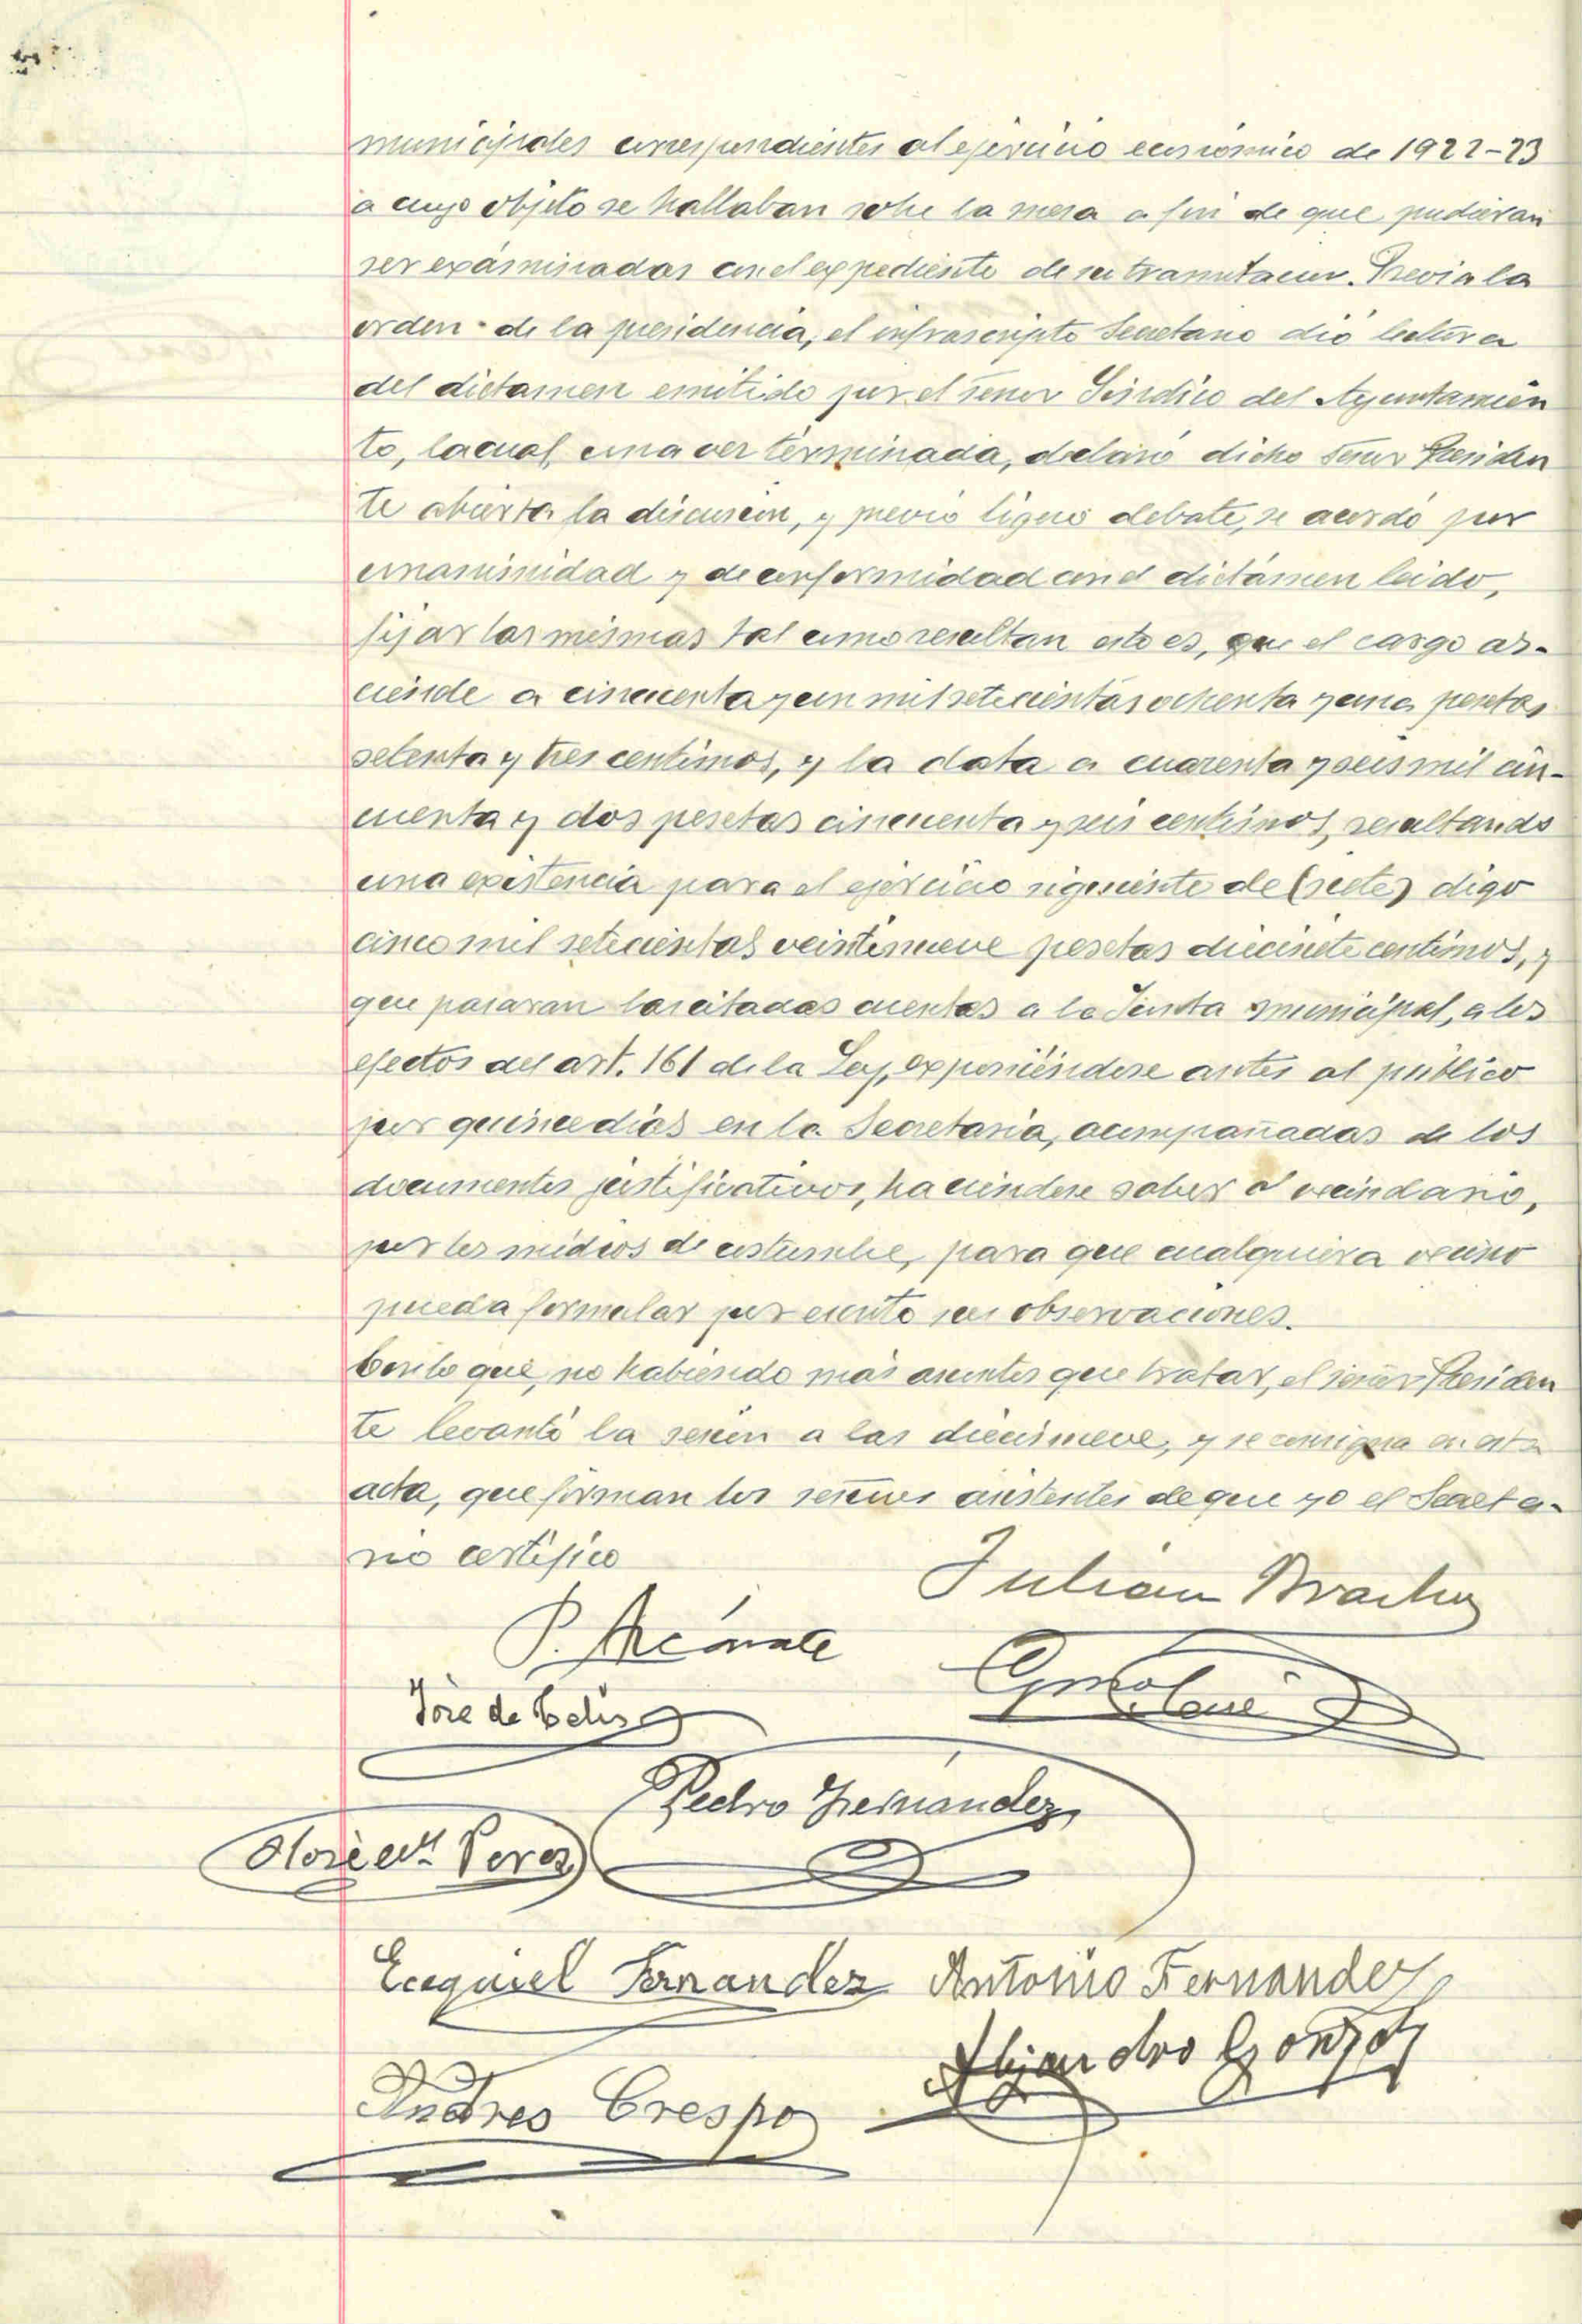 municipales correspondientes al ejercicio económico de 1922-23
a cuyo objeto se hallaban sobre la mesa a fin de que pudieran
ser exáminadas con el expediente de su tramitacion. Previa la
orden de la presidencia, el infrascripto Secretario dió lectura
del dictamen emitido por el señor Sindico del Ayuntamien
to, la cual, una vez terminada, declaró dicho señor Presiden
te abierta la discusion, y previo ligero debate, se acordó por
unanimidad y de conformidad con el dictámen leido,
fijar las mismas tal como resultan esto es, que el cargo as-
ciende a cincuenta y un mil setecientas ochenta y una pesetas
setenta y tres centimos, y la data a cuarenta y seis mil cin-
cuenta y dos pesetas cincuenta y seis centimos, resultando
una existencia para el ejercicio siguiente de (siete) digo
cinco mil setecientas veintinueve pesetas diecisiete centimos, y
que pasaran las citadas cuentas a la Junta municipal, a los
efectos del art. 161 de la Ley, exponiéndose antes al público
por quince dias en la Secretaria, acompañadas de los
documentos justificativos, haciendose saber al vecindario,
por los medios de costumbre, para que cualquiera vecino
pueda formular por escrito sus observaciones.
Con lo que, no habiendo más asuntos que tratar, el señor Presiden
te levantó la sesion a las diecinueve, y se consigna en esta
acta, que firman los señores asistentes de que yo el Secreta-
rio certifico
Julian
P.
José de Celis
Pedro Fernández
Perez
Ecequiel Fernandez Antonio Fernandez
Alejandro Gonzalez
Andres Crespo